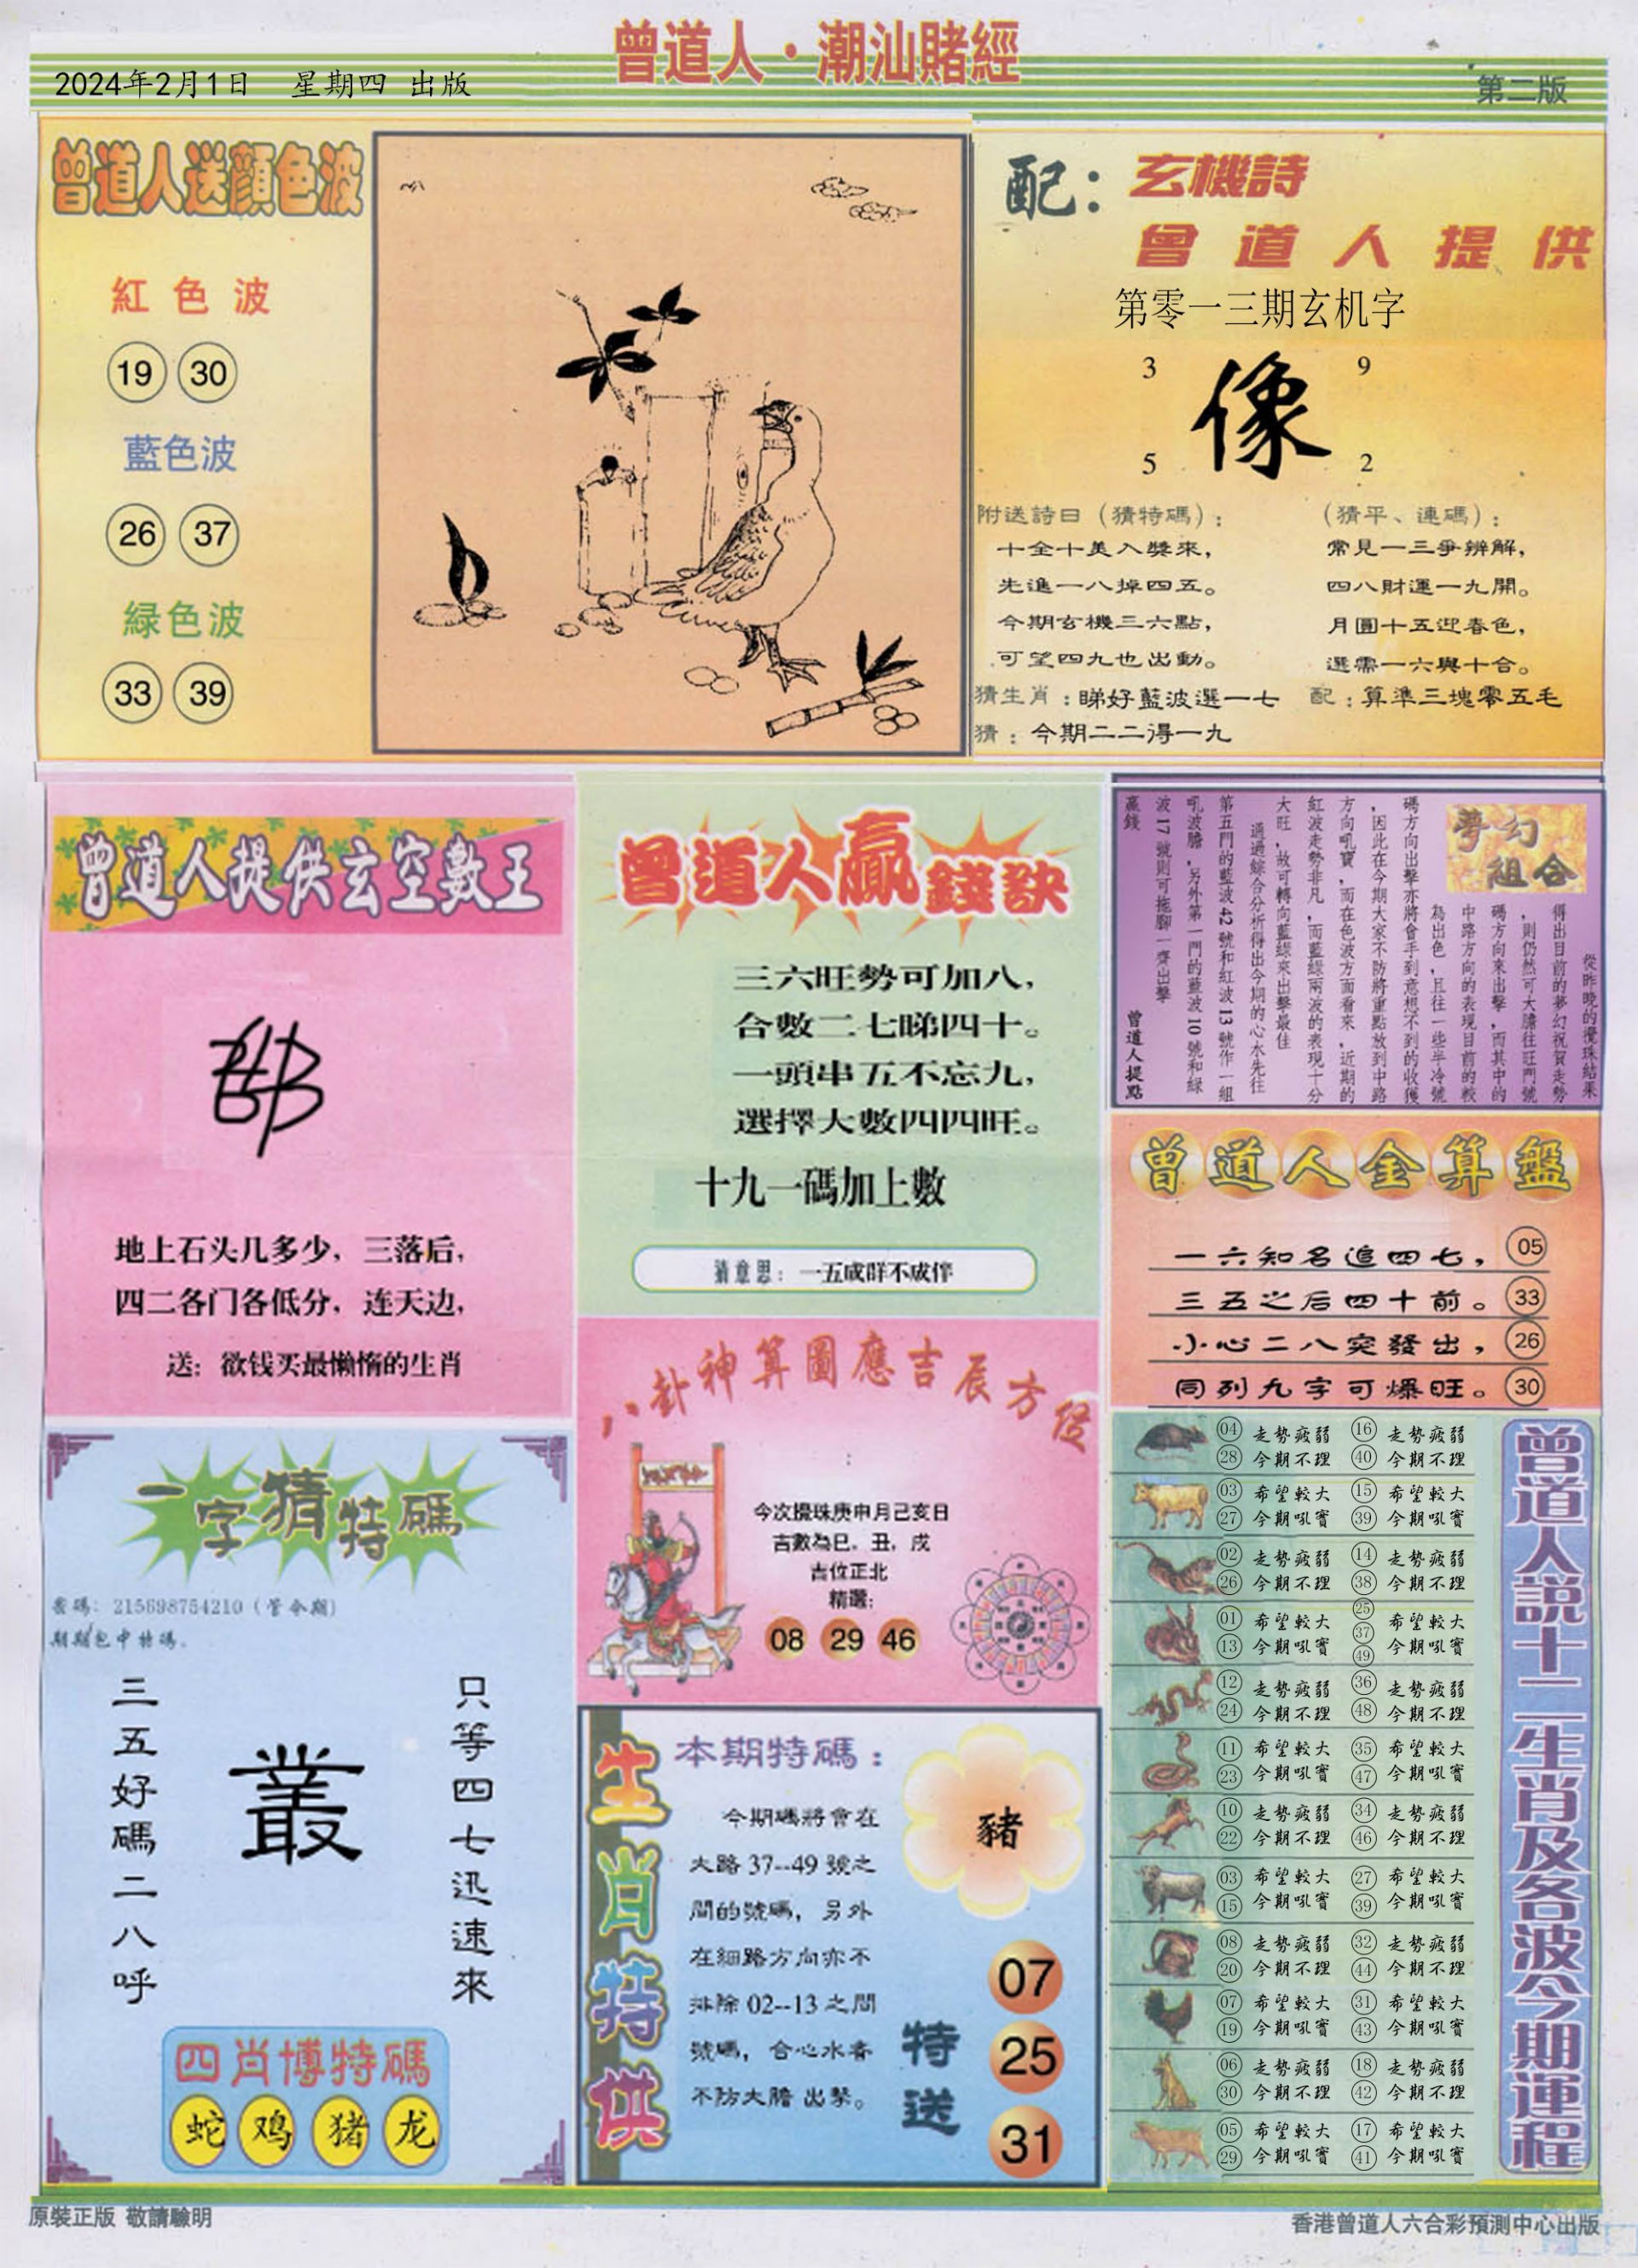 曾道人·潮汕賭經
2024年2月1日 星期四 出版
第二版
曾道人送顔色波
紅色波
19 30
藍色波
26 37
緑色波
33 39
配：玄機詩
曾道人提供
第零一三期玄机字
3 9
像
5 2
附送詩日（猜特碼）：
十全十美入獎來，
先進一八掉四五。
今期玄機三六點，
可望四九也出動。
（猜平、連碼）：
常見一三爭辨解，
四八財運一九開。
月圓十五迎春色，
選需一六與十合。
猜生肖：睇好藍波選一七
配：算準三塊零五毛
猜：今期二二得一九
曾道人提供玄空數王
地上石头几多少，三落后，
四二各门各低分，连天边，
送：欲钱买最懒惰的生肖
曾道人贏錢訣
三六旺勢可加八，
合數二七睇四十。
一頭串五不忘九，
選擇大數四四旺。
十九一碼加上數
猜意思：一五成群不成伴
夢幻
組合
從昨晚的攪珠結果
得出目前的夢幻祝賀走勢
，則仍然可大膽往旺門號
碼方向來出擊，而其中的
中路方向的表現目前的較
為出色，且往一些半冷號
碼方向出擊亦將會手到意想不到的收獲
，因此在今期大家不防將重點放到中路
方向吼寶，而在色波方面看來，近期的
紅波走勢非凡，而藍綠兩波的表現十分
大旺，故可轉向藍綠來出擊最佳
通過綜合分析得出今期的心水先往
第五門的藍波42號和紅波13號作一組
吼波膽，另外第一門的藍波10號和綠
波17號則可拖腳一齊出擊
贏錢
曾道人提點
曾道人金算盤
一六知名追四七， 05
三五之后四十前。 33
小心二八突發出， 26
同列九字可爆旺。 30
八卦神算圖應吉辰方位
今次攪珠庚申月己亥日
吉數為巳，丑，戌
吉位正北
精選：
08 29 46
一字猜特碼
密碼：215698754210（管令期）
期期包中特碼。
三五好碼二八呼
叢
只等四七迅速來
四肖博特碼
蛇 鸡 猪 龙
生肖特供
本期特碼：
今期碼將會在
大路37--49號之
間的號碼，另外
在細路方向亦不
排除02--13之間
號碼，合心水者
不防大膽出擊。
豬
特送
07
25
31
曾道人說十二生肖及各波今期運程
04 走勢疲弱 16 走勢疲弱
28 今期不理 40 今期不理
03 希望較大 15 希望較大
27 今期吼寶 39 今期吼寶
02 走勢疲弱 14 走勢疲弱
26 今期不理 38 今期不理
01 希望較大 25 37 49 希望較大
13 今期吼寶 今期吼寶
12 走勢疲弱 36 走勢疲弱
24 今期不理 48 今期不理
11 希望較大 35 希望較大
23 今期吼寶 47 今期吼寶
10 走勢疲弱 34 走勢疲弱
22 今期不理 46 今期不理
03 希望較大 27 希望較大
15 今期吼寶 39 今期吼寶
08 走勢疲弱 32 走勢疲弱
20 今期不理 44 今期不理
07 希望較大 31 希望較大
19 今期吼寶 43 今期吼寶
06 走勢疲弱 18 走勢疲弱
30 今期不理 42 今期不理
05 希望較大 17 希望較大
29 今期吼寶 41 今期吼寶
原裝正版 敬請驗明
香港曾道人六合彩預測中心出版